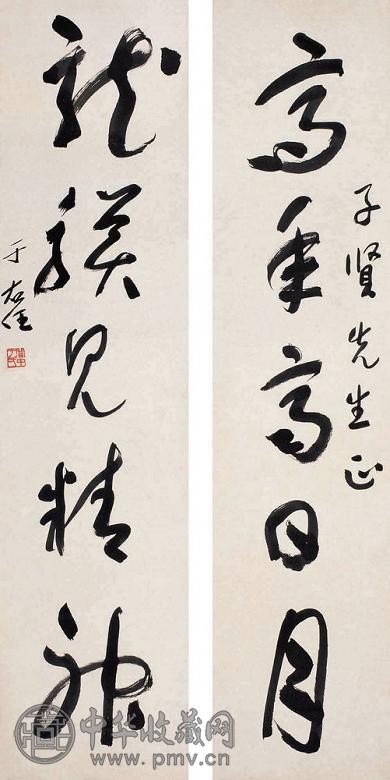 高高日月
子賢先生正
龍見精神
于右任
中华收藏网
www.pmv.cn